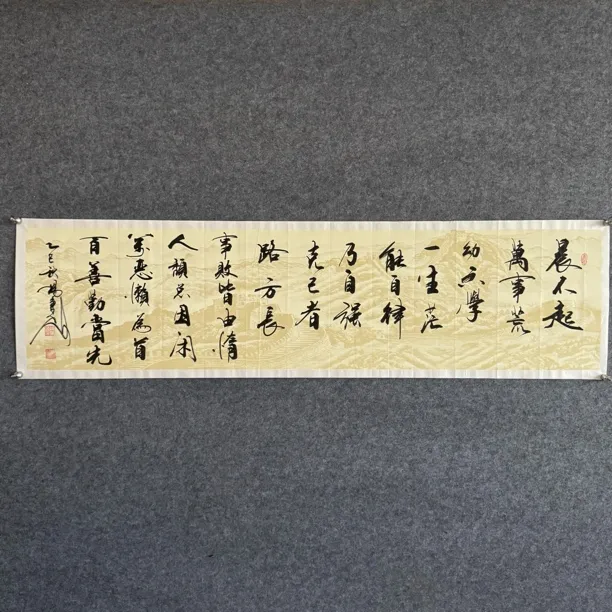 晨不起
萬事荒
幼不學
一生茫
能自律
乃自强
克己者
路方長
事敗皆由惰
人頹只因闲
萬惡懶為首
百善勤當先
乙巳秋楊